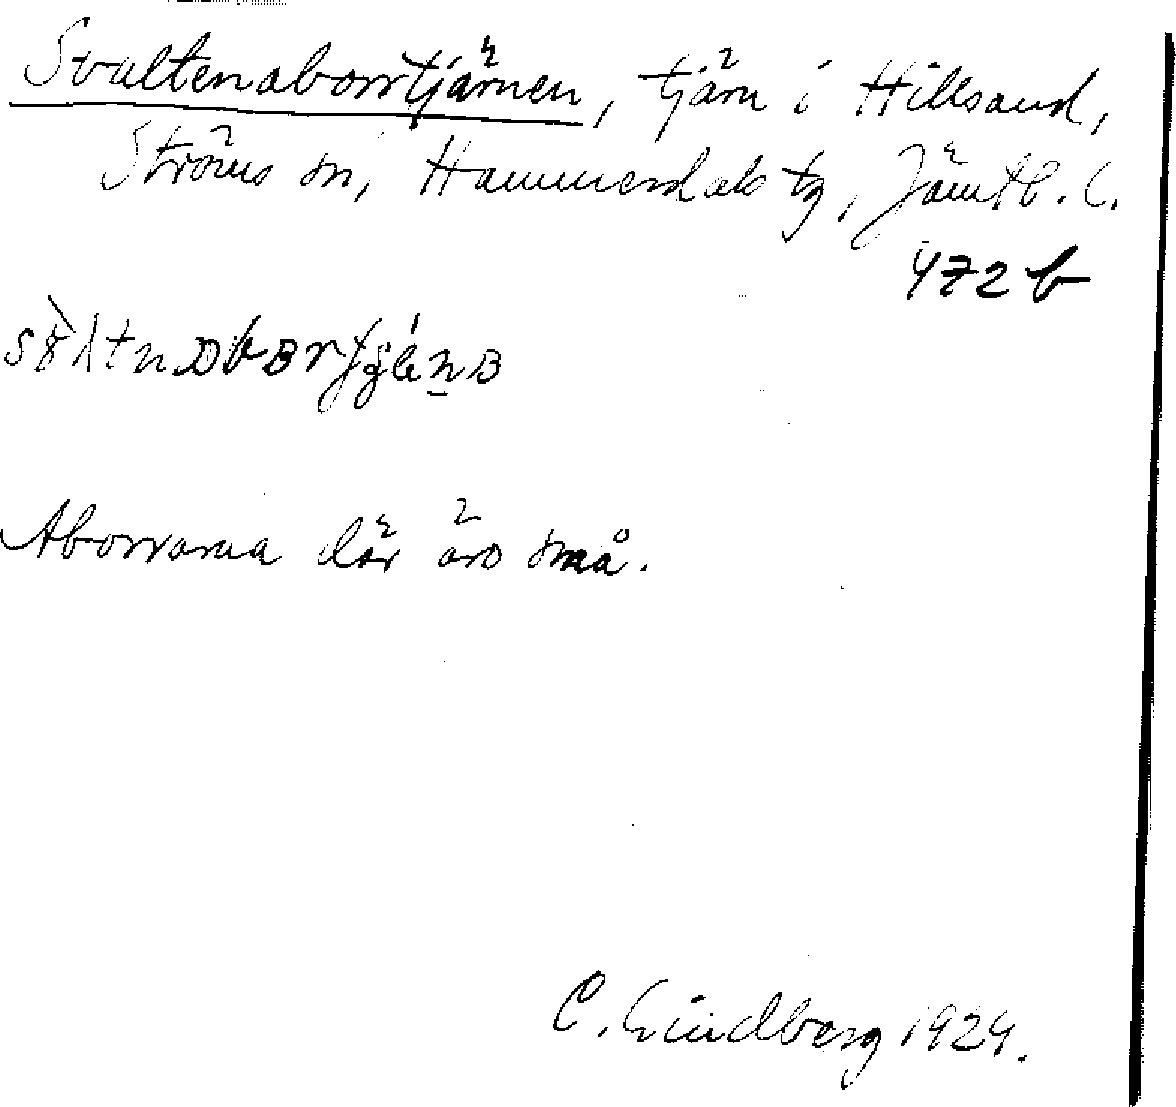 Svaltenaborrtjärnen, tjärn i Hillsand,
Ströms sn, Hammerdals tg, Jämtl. l.
472 b
Aborrarna där äro små.
C. Lindberg 1924.